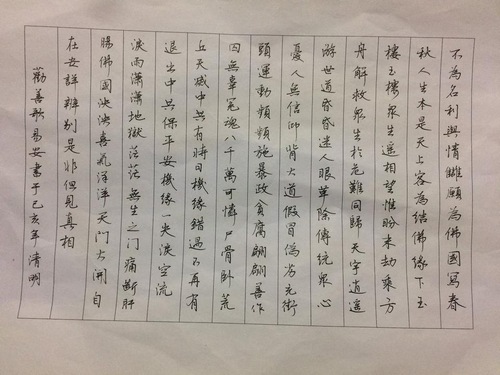 不為名利與情讎願為佛國寫春
秋人生本是天上客為結佛緣下玉
樓玉樓眾生遥相望惟盼末劫乘方
舟解救眾生於危難同歸天宇逍遥
游世道昏昏迷人眼華除傳統眾心
憂人無信仰背大道假冒偽劣充街
頭運動頻頻施暴政貪腐翩翩善作
囚無辜冤魂八千萬可憐尸骨卧荒
丘天滅中共有時日機緣錯過不再有
退出中共保平安機緣一失淚空流
淚雨瀟瀟地獄茫茫無生之門痛斷肝
腸佛國泱泱喜氣洋洋天門大開自
在安詳辨别是非但見真相
勸善歌易安書于己亥年清明